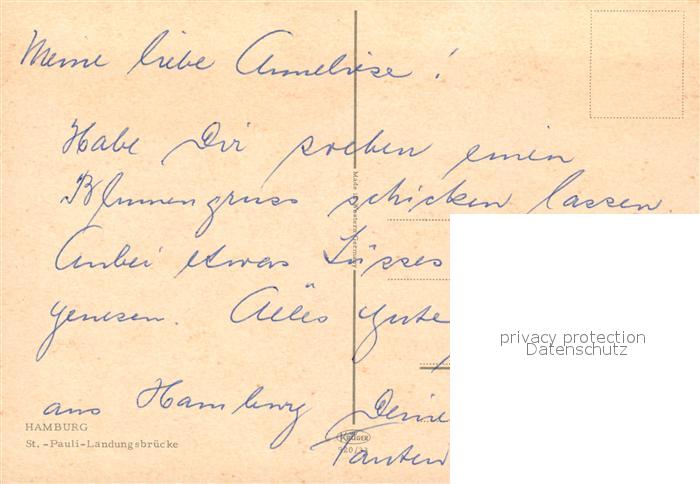 Meine liebe Anneliese!
Habe Dir soeben einen
Blumengruss schicken lassen.
Anbei etwas Süsses
genesen. Alles gute
aus Hamburg Deine
Tanten
HAMBURG
St. -Pauli-Landungsbrücke
Made in Western Germany
KRÜGER
920/33
privacy protection
Datenschutz